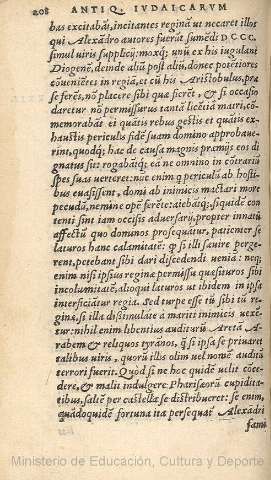 208 ANTIQ. IVDAICARVM
bas excitabāt, incitantes reginā ut necaret illos
qui Alexādro autores fuerāt sumēdi DCCC.
simul uiris supplicij: moxq; unū ex his iugulant
Diogenē, deinde aliū post aliū, donec potētiores
cōueniētes in regiā, et cū his Aristobulus, præ
se ferēs, nō placere sibi quæ fierēt, & si occasio
daretur nō permissurus tantā licētiā matri, cō-
memorabāt et quātis rebus gestis et quātis ex-
haustis periculis fidē suam domino approbaue-
rint, quodq; hac de causa magnis præmijs eos di
gnatus sit: rogabātq; ea ne omnino in cōtrariū
spes suas uerteret: nūc enim q periculū ab hosti-
bus euasissent, domi ab inimicis mactari more
pecudū, nemine opē ferēte: aiebātq; siquidē con
tenti sint iam occisis aduersarij, propter innatū
affectū quo dominos prosequātur, patiēter se
laturos hanc calamitatē: q si illi sæuire perge-
rent, petebant sibi dari discedendi ueniā: neq;
enim nisi ipsius regina permissu quesituros sibi
incolumitatē, alioqui laturos ut ibidem in ipsa
interficiātur regia. Sed turpe esse tū sibi tū re-
ginæ, si illa dissimulāte a mariti inimicis uexē-
tur: nihil enim libentius auditurū Aretā A-
rabem & reliquos tyrānos, q si ipsa se priuaret
talibus uiris, quorū illis olim uel nomē auditū
terrori fuerit. Quòd si ne hoc quidē uelit cōce-
dere, & malit indulgere Pharisæorū cupidita-
tibus, saltē per castella se distribueret: se enim,
quādoquidē fortuna ita persequāt Alexādri
fami
Ministerio de Educación, Cultura y Deporte